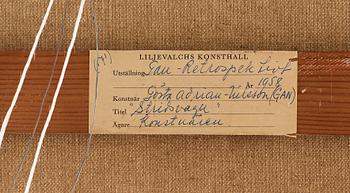 LILJEVALCHS KONSTHALL
Utställning Gan-Retrospektivt
År 1958
Konstnär Gösta Adrian-Nilsson (GAN)
Titel "Stridsvagn"
Ägare Konstnären